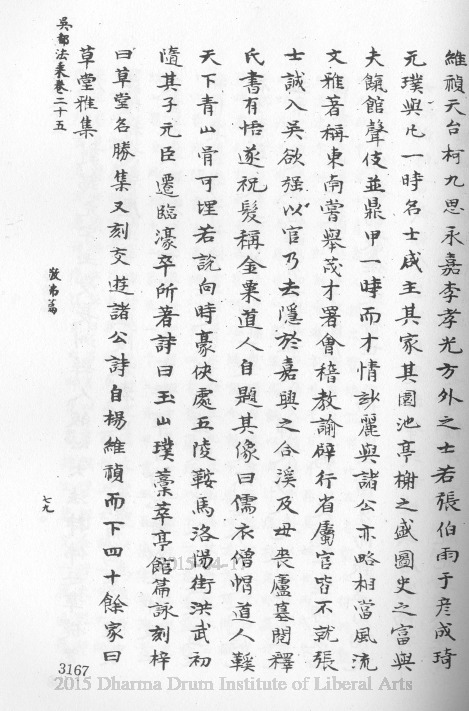 維禎天台柯九思永嘉李孝光方外之士若張伯雨于彥成琦
元璞與凡一時名士咸主其家其園池亭榭之盛圖史之富與
夫餼館聲伎並鼎甲一時而才情妙麗與諸公亦略相當風流
文雅著稱東南嘗舉茂才署會稽教諭辟行省屬官皆不就張
士誠入吳欲强以官乃去隱於嘉興之合溪及母喪廬墓閱釋
氏書有悟遂祝髮稱金粟道人自題其像曰儒衣僧帽道人鞵
天下青山骨可埋若說向時豪俠處五陵鞍馬洛陽街洪武初
隨其子元臣遷臨濠卒所著詩曰玉山璞藁萃亭館篇詠刻梓
曰草堂名勝集又刻交遊諸公詩自楊維禎而下四十餘家曰
草堂雅集
吳都法乘卷二十五
放弗篇
七九
3167
2015 Dharma Drum Institute of Liberal Arts